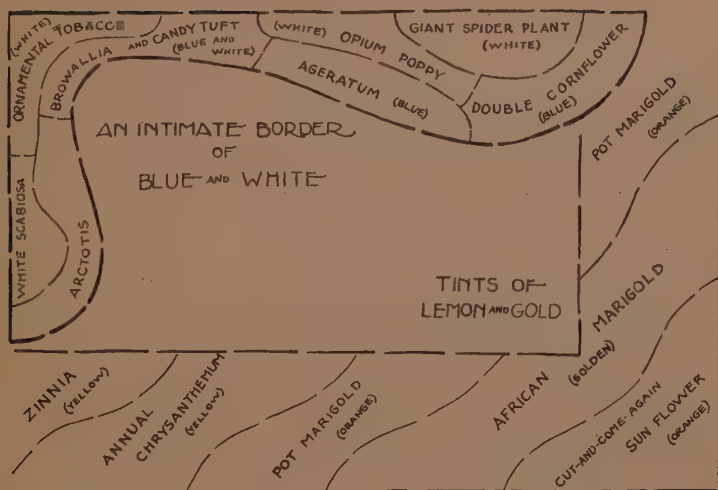 (WHITE)
ORNAMENTAL TOBACCO
BROWALLIA AND CANDYTUFT
(BLUE AND
WHITE)
(WHITE) OPIUM POPPY
GIANT SPIDER PLANT
(WHITE)
AGERATUM (BLUE)
DOUBLE CORNFLOWER
(BLUE)
POT MARIGOLD
(ORANGE)
AN INTIMATE BORDER
OF
BLUE AND WHITE
WHITE SCABIOSA
ARCTOTIS
TINTS OF
LEMON AND GOLD
ZINNIA
(YELLOW)
ANNUAL
CHRYSANTHEMUM
(YELLOW)
POT MARIGOLD
(ORANGE)
AFRICAN MARIGOLD
(GOLDEN)
CUT-AND-COME-AGAIN
SUN FLOWER
(ORANGE)